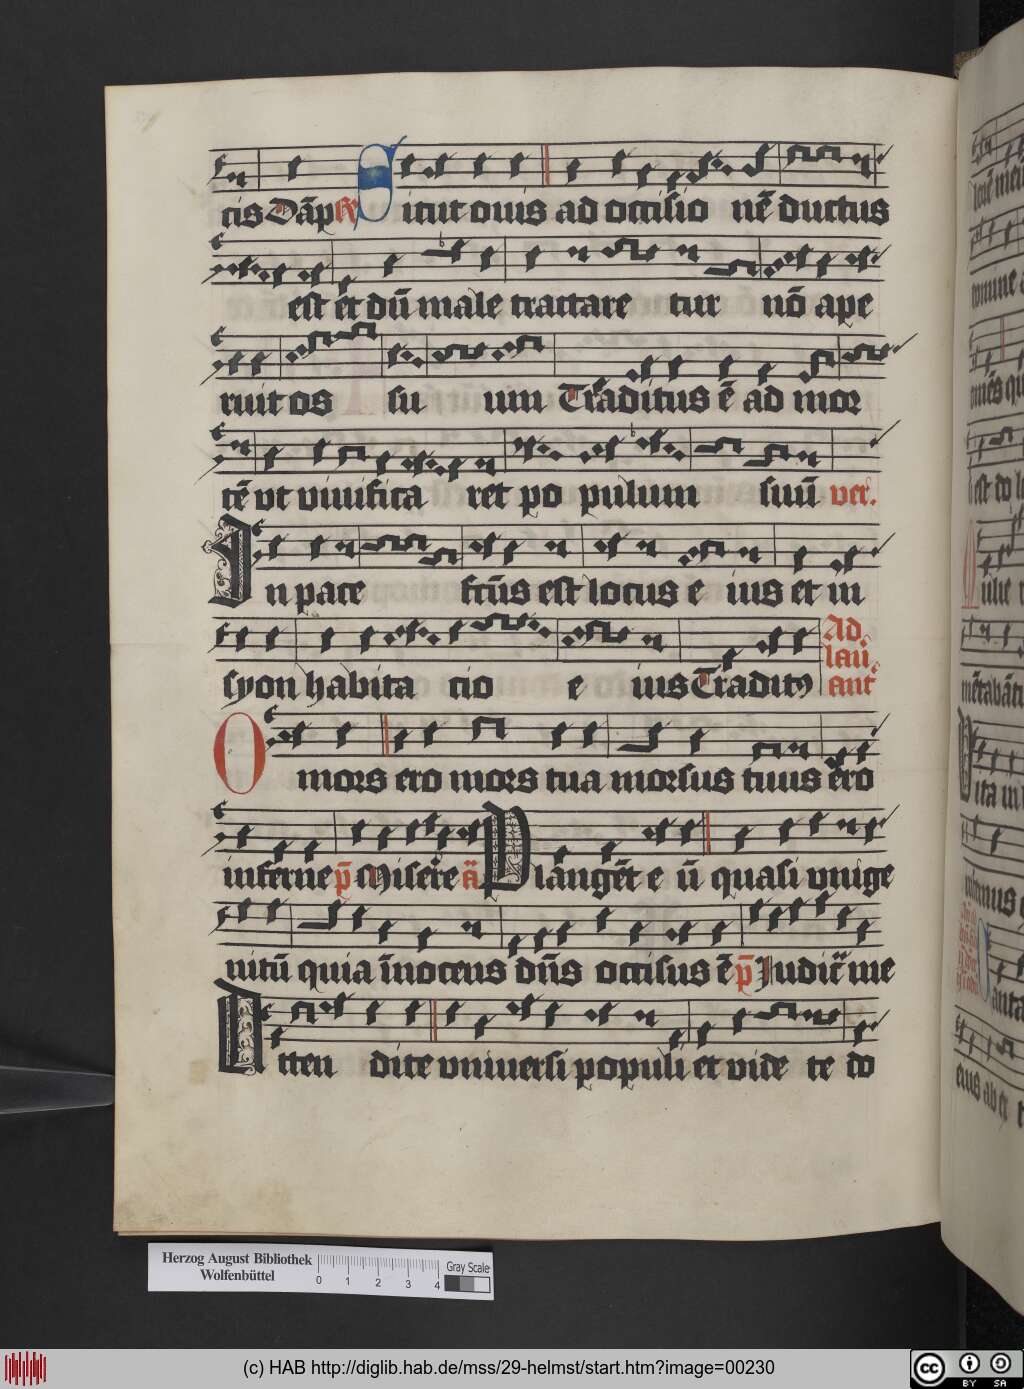 cis Dāp℟ Sicut ovis ad occisio nē ductus
est et dū male tractare tur nō ape
ruit os su um Traditus ē ad mor
tē vt viuifica ret po pulum suū ver.
In pace fctūs est locus e ius et in
syon habita cio e ius Tradit9 Ad
lau.
ant
O mors ero mors tua morsus tuus ero
inferne p̄ Misere ā Plangēt e ū quasi vnige
nitū quia īnocens dn̄s occisus ē p̄ Iudica me
Atten dite vniuersi populi et vide te do
Herzog August Bibliothek
Wolfenbüttel
0 1 2 3 4
Gray Scale
(c) HAB http://diglib.hab.de/mss/29-helmst/start.htm?image=00230
cc BY SA